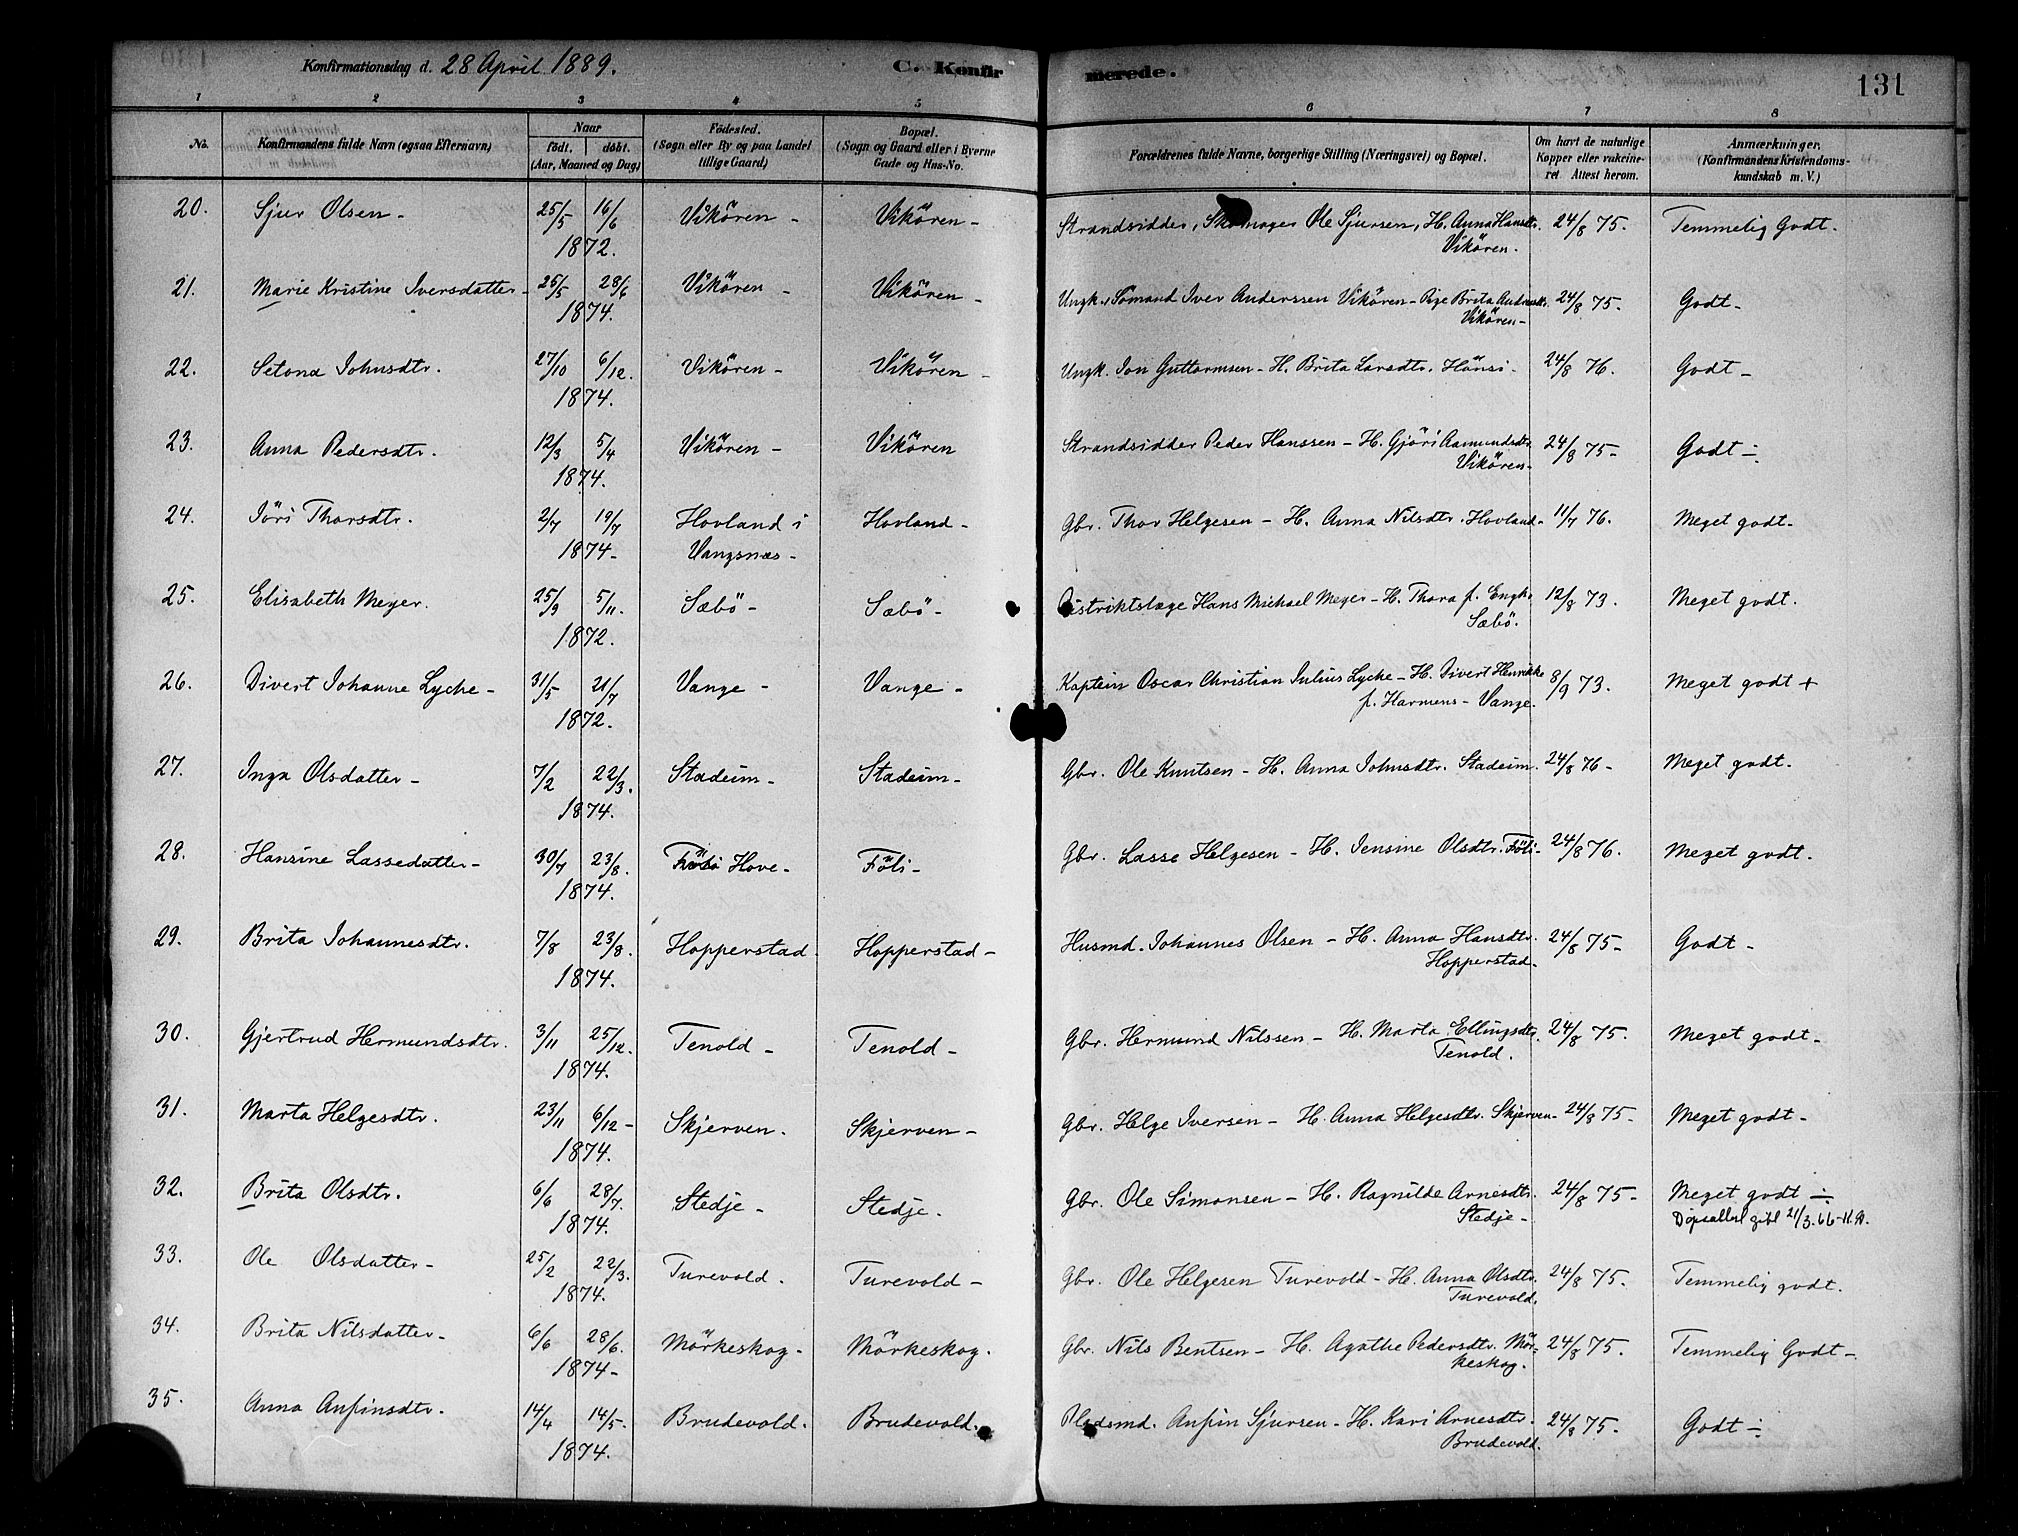 Konfirmationsdag d. 28 April 1889. C. Konfirmerede. 131
1 2 3 4 5 6 7 8
No. Konfirmandens fulde Navn (ogsaa Efternavn) Naar født. døbt. (Aar, Maaned og Dag) Fødested. (Sogn eller By og paa Landet tillige Gaard) Bopæl. (Sogn og Gaard eller i Byerne Gade og Hus-No. Forældrenes fulde Navne, borgerlige Stilling (Næringsvei) og Bopæl. Om havt de naturlige Kopper eller vakcineret Attest herom. Anmærkninger. (Konfirmandens Kristendomskundskab m. V.)
20. Sjur Olsen - 25/5 16/6 Vikören - Vikören - Strandsidder, Skomager Ole Sjursen, H. Anna Hansdtr. 24/8 75. Temmelig Godt.
1872. Vikören.
21. Marie Kristine Iversdatter - 25/5 28/6 Vikören - Vikören - Ungk. Sömand Iver Anderssen Vikören - Pige Brita 24/8 75. Godt -
1874. Vikören -
22. Setona Johnsdtr. 27/10 6/12. Vikören - Vikören - Ungk. Jon Guttormsen - H. Brita Larsdtr. Hönsi - 24/8 76. Godt -
1874.
23. Anna Pedersdtr. 12/3 5/4 Vikören - Vikören Strandsidder Peder Hanssen - H. Gjöri Aamundsdtr. 24/8 75 - Godt ÷
1874. Vikören -
24. Jöri Thorsdtr. 2/7 19/7 Hovland i Hovland - Gbr. Thor Helgesen - H. Anna Nilsdtr. Hovland - 11/7 76. Meget godt -
1874 - Vangsnæs -
25. Elisabeth Meyer. 25/9 5/11. Sæbö - Sæbö - Distriktslæge Hans Michael Meyer - H. Thora f. Engh. 12/8 73. Meget godt.
1872. Sæbö.
26. Divert Johanne Lyche - 31/5 21/7 Vange - Vange - Kaptein Oscar Christian Julius Lyche - H. Divert Henrikke 8/9 73. Meget godt +
1872. f. Harmens - Vange.
27. Inga Olsdatter - 7/2 22/3. Stadeim - Stadeim - Gbr. Ole Knutsen - H. Anna Johnsdtr. Stadeim. 24/8 76 - Meget godt.
1874.
28. Hansine Lassedatter - 30/7 23/8. Hove - Föli - Gbr. Lasse Helgesen - H. Jensine Olsdtr. Föli - 24/8 76. Meget godt.
1874.
29. Brita Johannesdtr. 7/8 23/8. Hopperstad. Hopperstad - Husmd. Johannes Olsen - H. Anna Hansdtr. 24/8 75 - Godt -
1874. Hopperstad -
30. Gjertrud Hermundsdtr. 3/11 25/12. Tenold - Tenold - Gbr. Hermund Nilssen - H. Marta Ellingsdtr. 24/8 75. Meget godt -
1874. Tenold.
31. Marta Helgesdtr. 23/11 6/12 - Skjerven. Skjerven - Gbr. Helge Iversen - H. Anna Helgesdtr. Skjerven - 24/8 75 - Meget godt -
1874.
32. Brita Olsdtr. 6/6 28/7. Stedje - Stedje. Gbr. Ole Simonsen - H. Ragnilde Arnesdtr. 24/8 75 - Meget godt ÷
1874. Stedje - Döpsattest gibt 21/3.66 -
33. Ole Olsdatter - 25/2 22/3. Turevold. Turevold - Gbr. Ole Helgesen Turevold - H. Anna Olsdtr. 24/8 75. Temmelig godt.
1874. Turevold.
34. Brita Nilsdatter - 6/6 28/6. Mörkeskog - Mörkeskog. Gbr. Nils Bentsen - H. Agathe Pedersdtr. Mör- 24/8 75. Temmelig Godt -
1874 - keskog.
35. Anna Anfinsdtr. 14/4 14/5. Brudevold. Brudevold. Pladsmd. Anfin Sjursen - H. Kari Arnesdtr. 24/8 75. Godt ÷
1874. Brudevold.